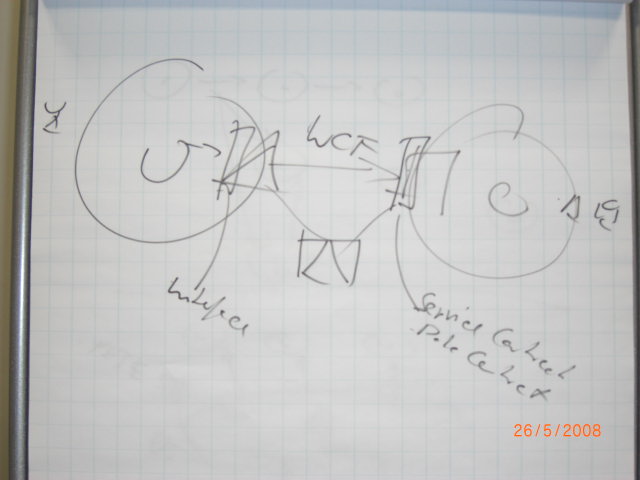 WCF
Interface
Service Contract
Data Contract
26/5/2008